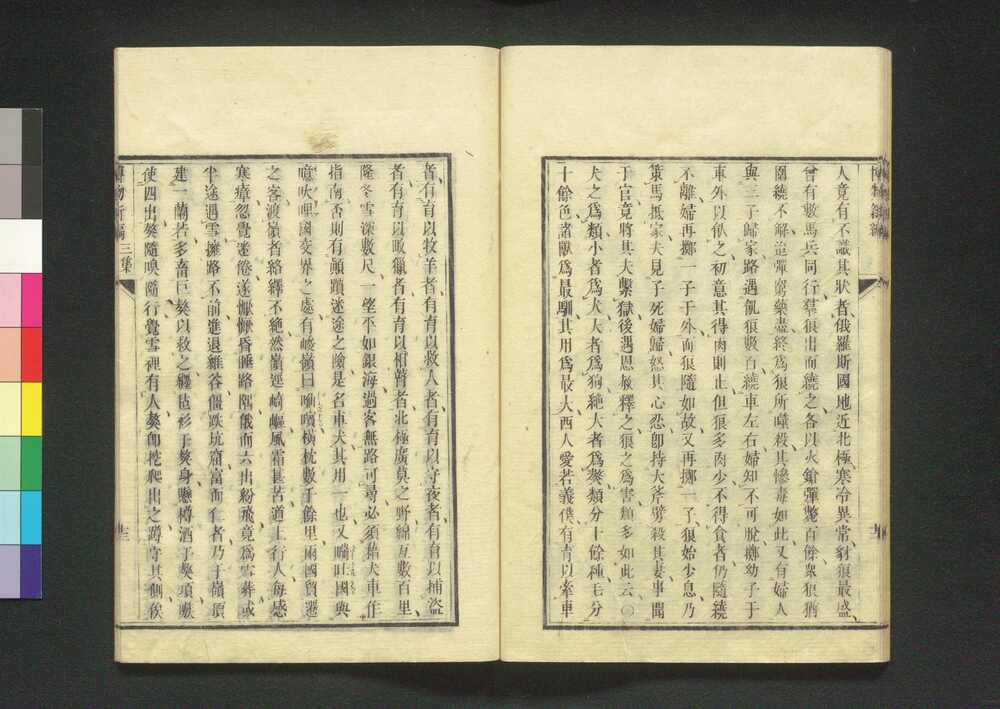 人竟有不識其狀者俄羅斯國地近北極寒冷異常豺狼最盛
曾有數馬兵同行羣狼出而繞之各以火鎗彈斃百餘衆狼猶
圍繞不解迨彈窮藥盡終爲狼所噬殺其慘毒如此又有婦人
與三子歸家路遇飢狼數百繞車左右婦知不可脫擲幼子于
車外以飢之初意其得肉則止但狼多肉少不得食者仍隨繞
不離婦再擲一子于外而狼隨如故又再擲一子狼始少息乃
策馬抵家夫見子死婦歸怒其心忍卽持大斧劈殺其妻事聞
于官竟將其夫繫獄後遇恩赦釋之狼之爲害類多如此云○
犬之爲類小者爲犬大者爲狗絶大者爲獒類分十餘種毛分
十餘色諸獸爲最馴其用爲最大西人愛若義僕有育以牽車
者有育以牧羊者有育以救人者有育以守夜者有育以捕盜
者有育以畋獵者有育以相瞽者北極廣莫之野綿亙數百里
隆冬雪深數尺一望平如銀海過客無路可尋必須藉犬車作
指南否則有顚躓迷途之險是名車犬其用一也又喘吐國與
噫吠哩國交界之處有峻嶺曰嘣嚬橫枕數千餘里兩國貿遷
之客渡嶺者絡繹不絶然嶺逕崎嶇風霜甚苦道上行人每感
寒瘴忽覺迷倦遂懨懨昏睡路隅俄而六出紛飛竟爲雪葬或
半途遇雪擁路不前進退維谷僵跌坑窟富而仁者乃于嶺頂
建一蘭若多畜巨獒以救之纏氈衫于獒身懸樽酒于獒項緩
使四出獒隨嗅隨行覺雪裡有人獒卽挖爬出之蹲守其側俟
博物新編三集
十三